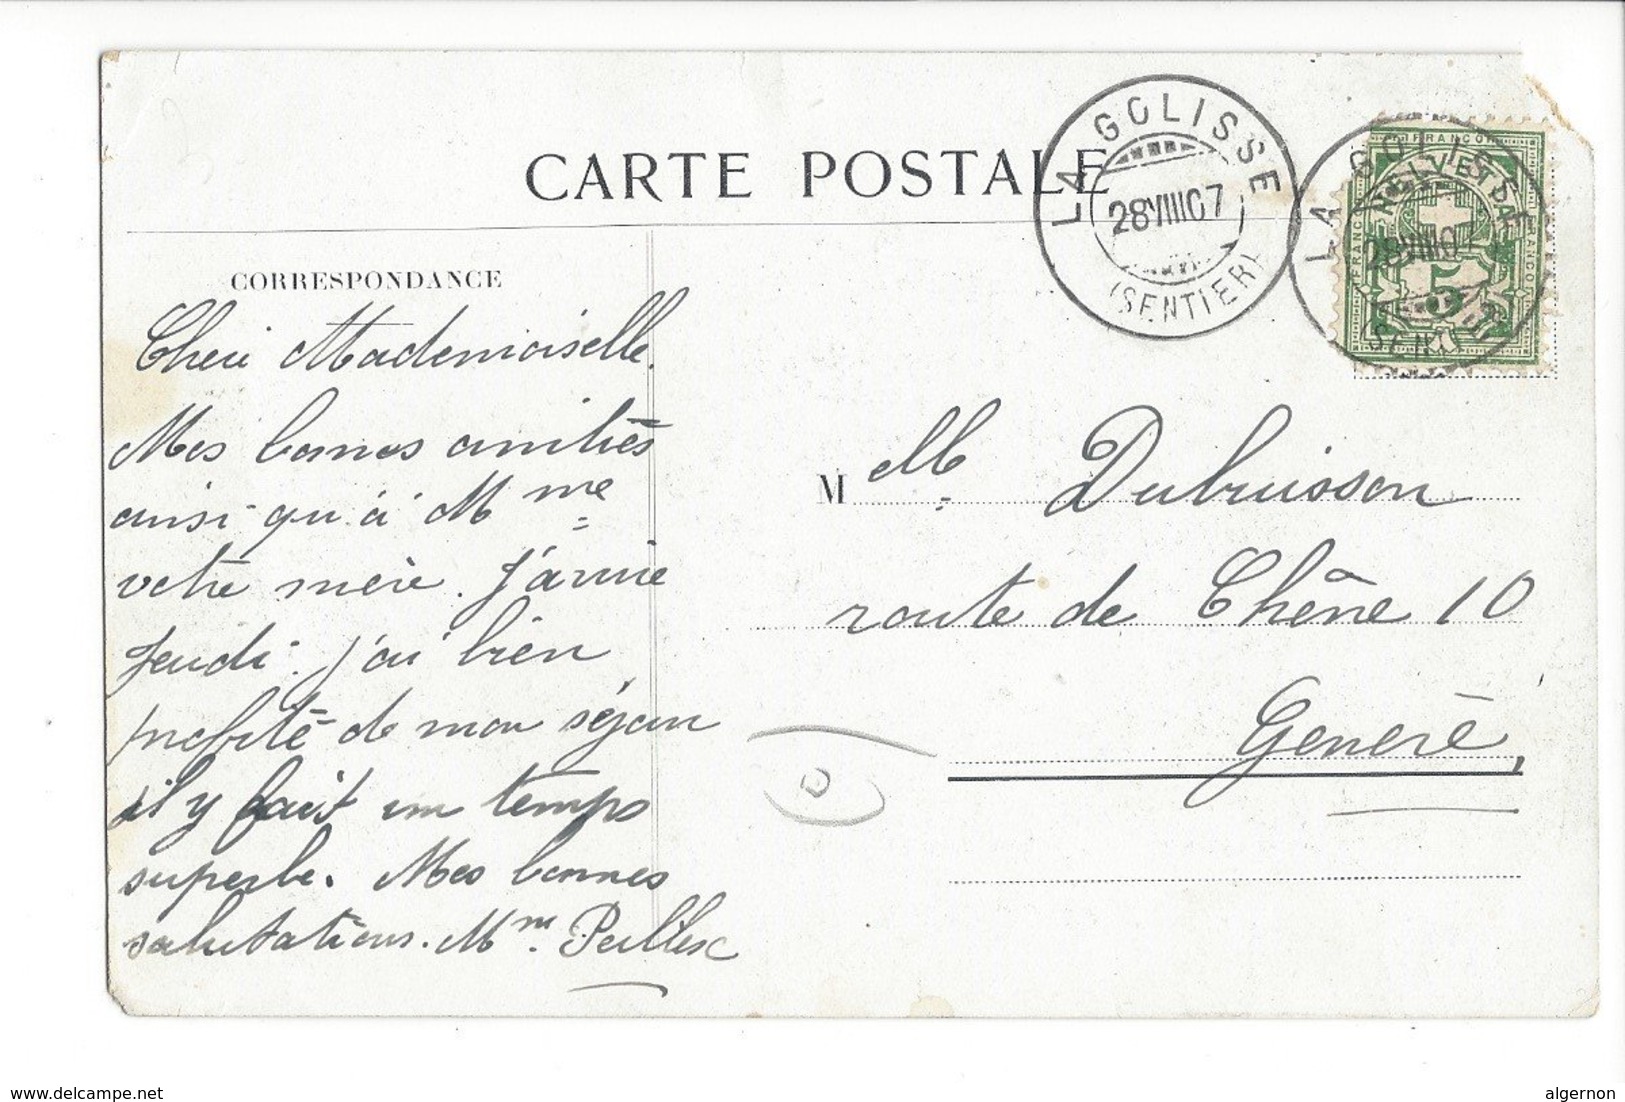 CARTE POSTALE
LA GOLISSE
28 VIII 07
(SENTIER)
LA GOLISSE
28 VIII 0
FRANCO
HELVETIA
FRANCO
FRANCO
5
CORRESPONDANCE
Chère Mademoiselle.
Mes bonnes amitiés
ainsi qu'à Mme
votre mère. J'arrive
Jeudi. j'ai bien
profité de mon séjour
il y fait un temps
superbe. Mes bonnes
salutations. Mm.
Melle Dubuisson
route de Chêne 10
Genève,
www.delcampe.net
algernon